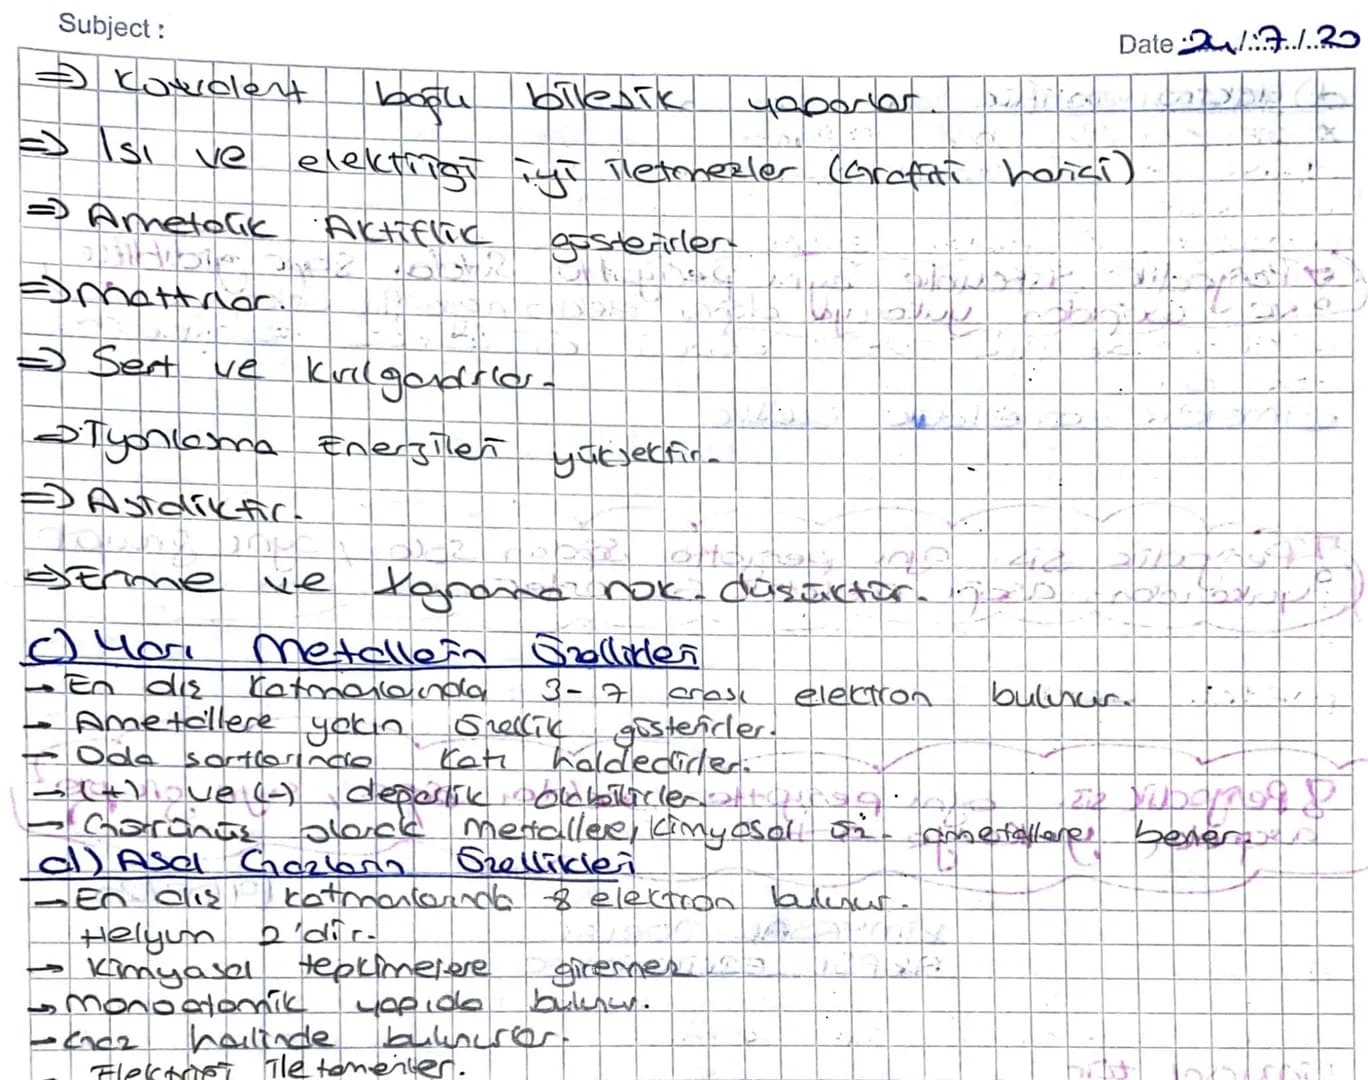 Subject :
Date : 24/7/20
⇒ Kovalent bağlı bileşik yaparlar.
⇒ Isı ve elektriği iyi iletmezler (Grafiti harici)
⇒ Ametalik Aktiflik gösterirler
⇒ Mattırlar.
⇒ Sert ve kırılgandırlar.
⇒ İyonlaşma Enerjileri yüksektir.
⇒ Asidiktir.
⇒ Erime ve kaynama nok. düşüktür.
c) Yarı Metallerin Özellikleri
→ En dış katmanlarında 3-7 arası elektron bulunur.
→ Ametallere yakın özellik gösterirler.
→ Oda şartlarında katı haldedirler.
→ (+) ve (-) değerlik alabilirler.
→ Görünüş olarak metallere, kimyasal öz. ametallere benzer.
d) Asal Gazların Özellikleri
→ En dış katmanlarında 8 elektron bulunur.
Helyum 2'dir.
→ Kimyasal tepkimelere giremez
→ Monoatomik yapıda bulunur.
→ Gaz halinde bulunurlar.
Elektriği iletemezler.